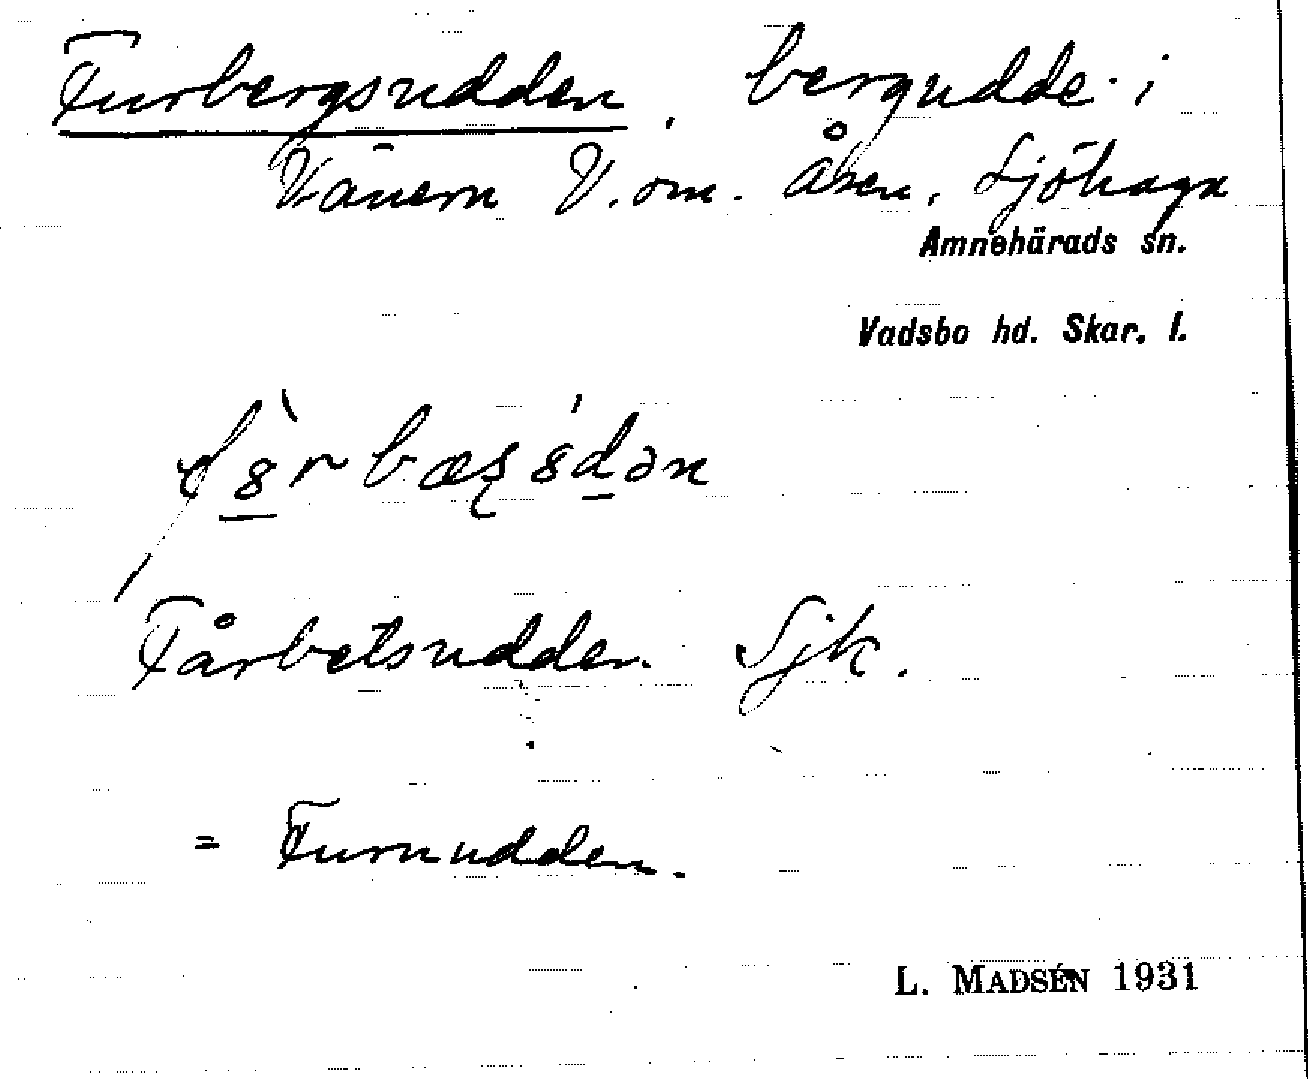 Furbergsudden, bergudde i
Vänern V. om Åsen, Sjöhaga
Amnehärads sn.
Vadsbo hd. Skar. l.
Fårbetsudden Sjk.
= Furuudden.
L. MADSÉN 1931